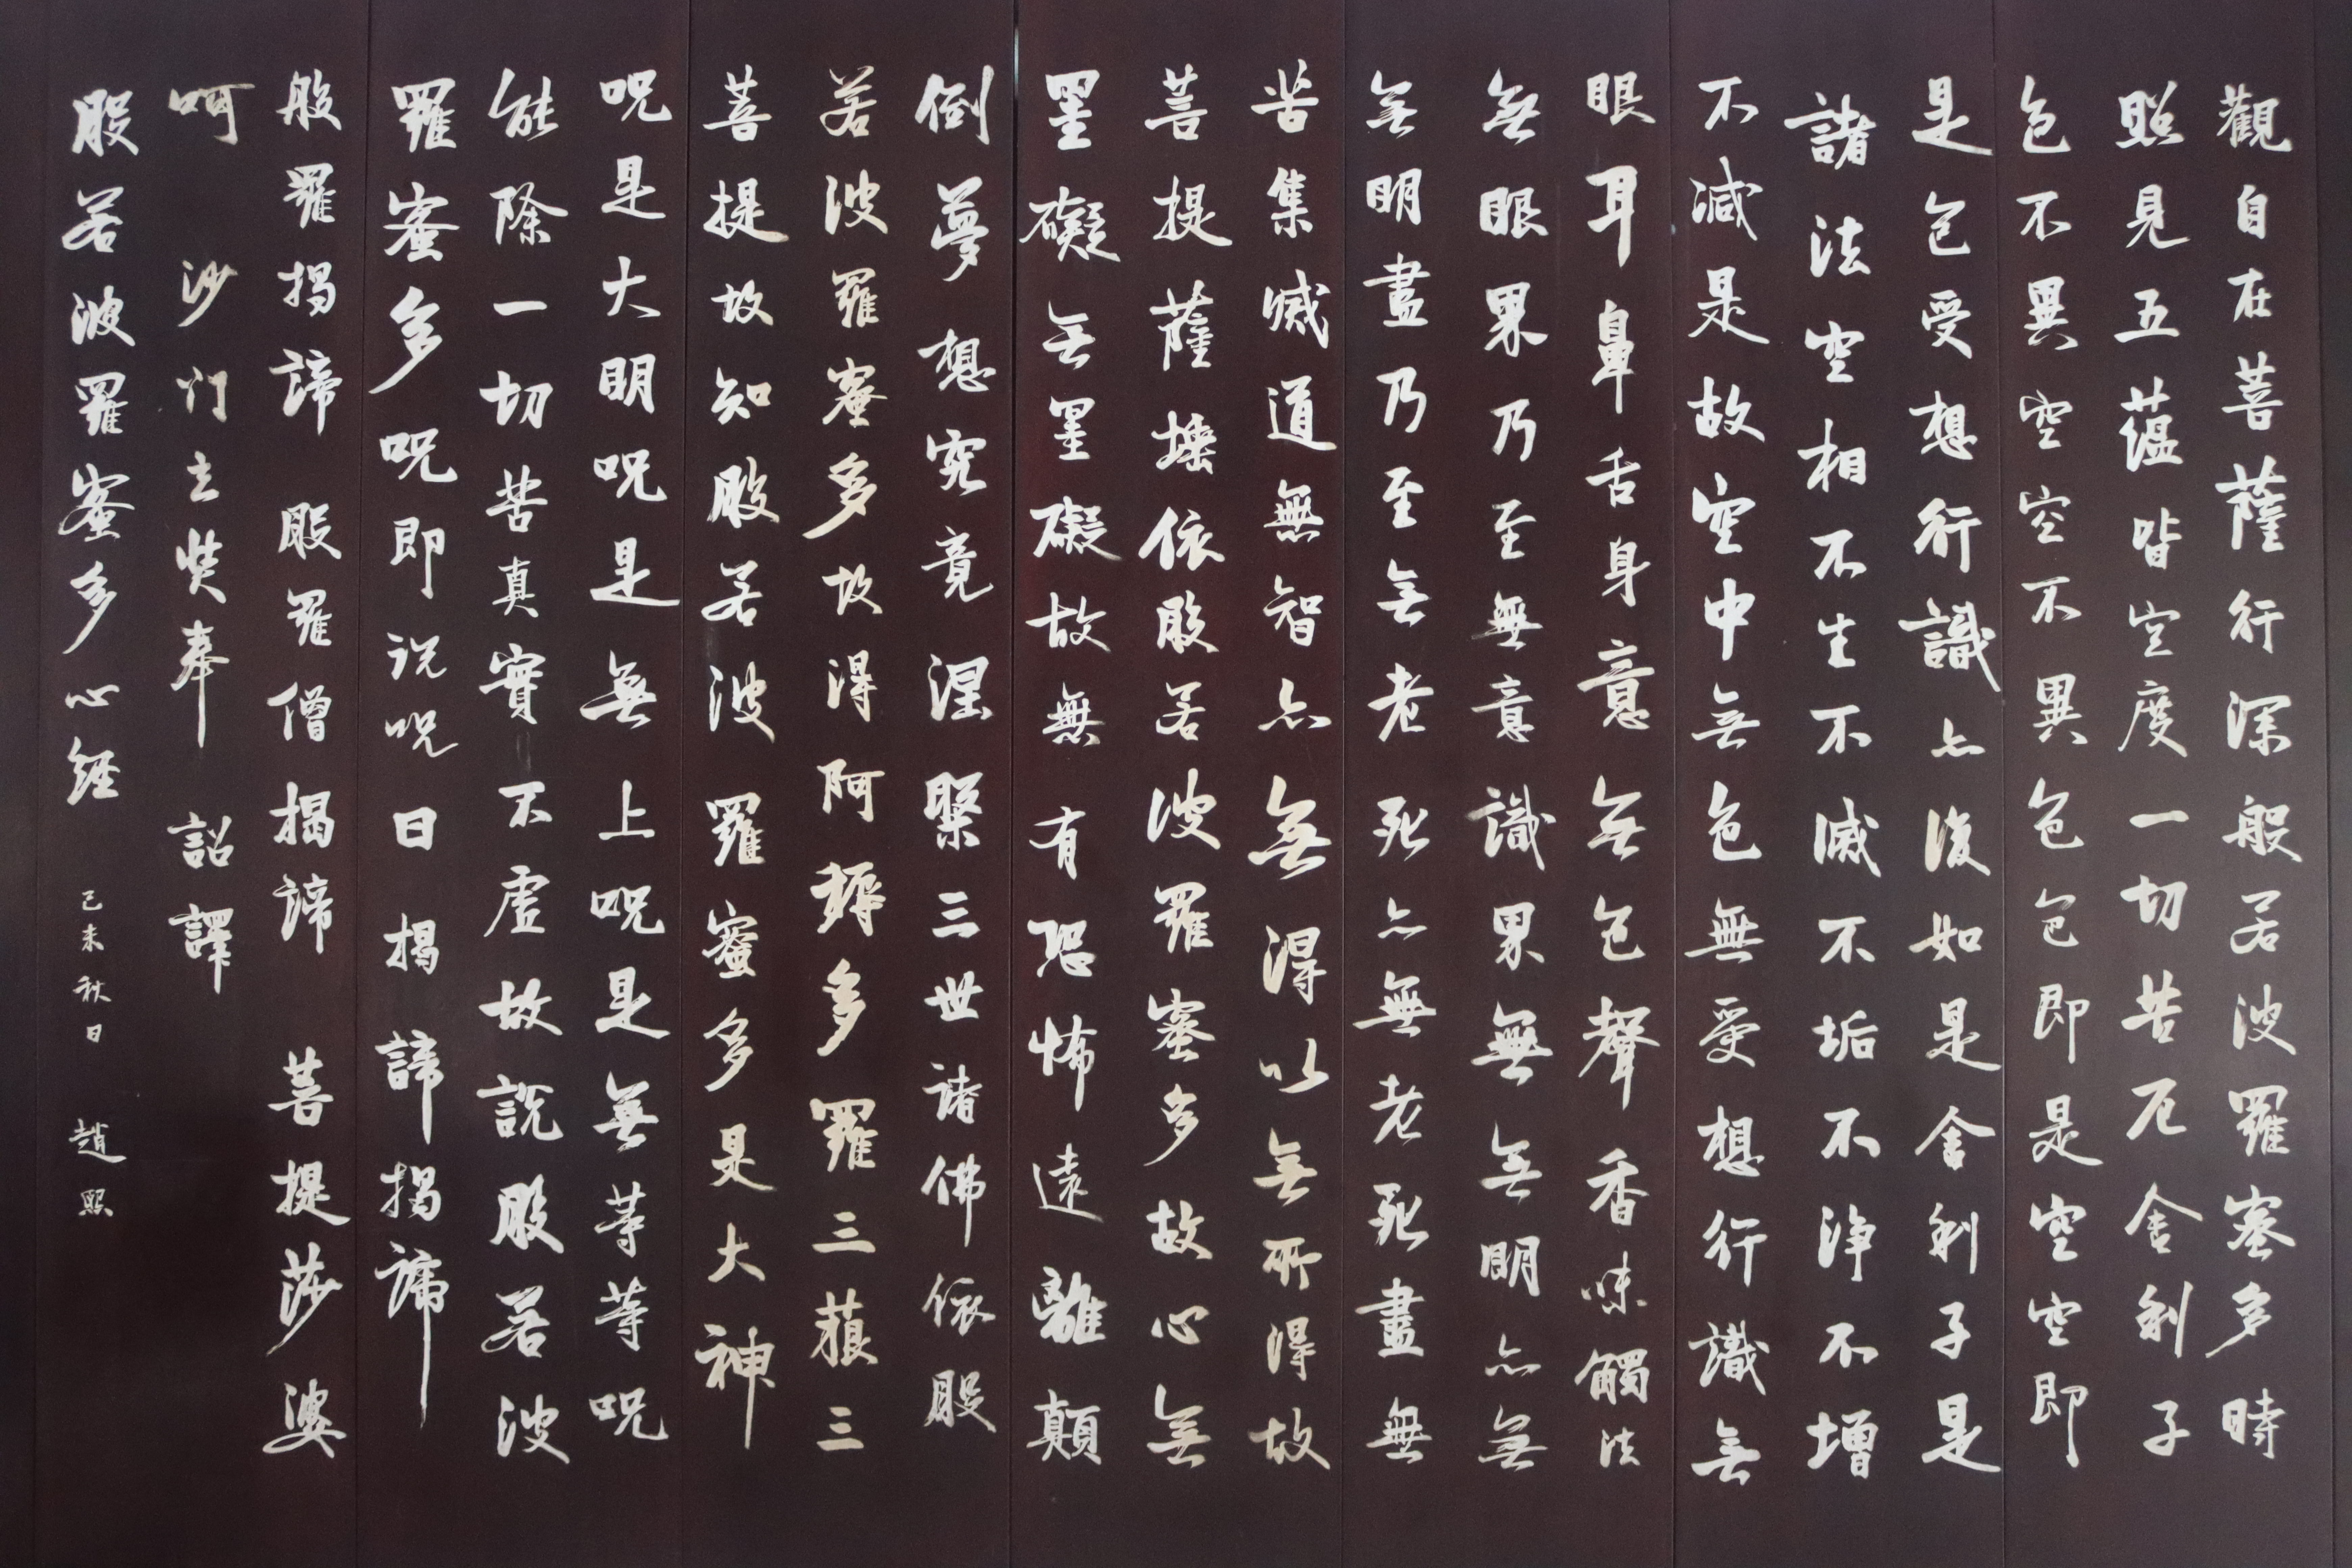 觀自在菩薩行深般若波羅蜜多時
照見五蘊皆空度一切苦厄舍利子
色不異空空不異色色即是空空即
是色受想行識亦復如是舍利子是
諸法空相不生不滅不垢不淨不增
不減是故空中無色無受想行識無
眼耳鼻舌身意無色聲香味觸法
無眼界乃至無意識界無無明亦無
無明盡乃至無老死亦無老死盡無
苦集滅道無智亦無得以無所得故
菩提薩埵依般若波羅蜜多故心無
罣礙無罣礙故無有恐怖遠離顛
倒夢想究竟涅槃三世諸佛依般
若波羅蜜多故得阿耨多羅三藐三
菩提故知般若波羅蜜多是大神
咒是大明咒是無上咒是無等等咒
能除一切苦真實不虛故說般若波
羅蜜多咒即说咒曰揭諦揭諦
般羅揭諦般羅僧揭諦菩提莎婆
呵沙门玄奘奉詔譯
般若波羅蜜多心經己未秋日趙熙